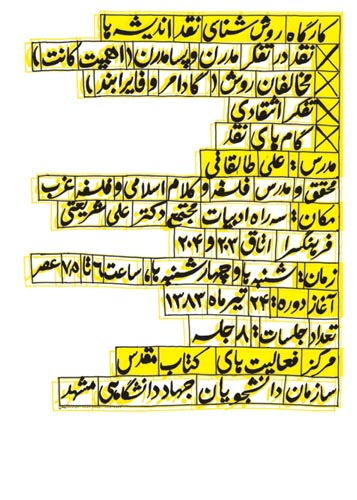 کارگاه روش شناسی نقد اندیشه ها
نقد در تفکر مدرن و پسامدرن (اهمیت کانت)
مخالفان روش (گادامر و فایرابند)
تفکر انتقادی
گام های نقد
مدرس: علی طالقانی
محقق و مدرس فلسفه و کلام اسلامی و فلسفه غرب
مکان: سه راه ادبیات مجتمع دکتر علی شریعتی
فرهنگسرا اتاق ۲۳ و ۲۰۴
زمان: شنبه ها و چهارشنبه ها، ساعت ۶ تا ۷،۵ عصر
آغاز دوره: ۲۴ تیر ماه ۱۳۸۳
تعداد جلسات: ۸ جلسه
مرکز فعالیت های کتاب مقدس
سازمان دانشجویان جهاد دانشگاهی مشهد